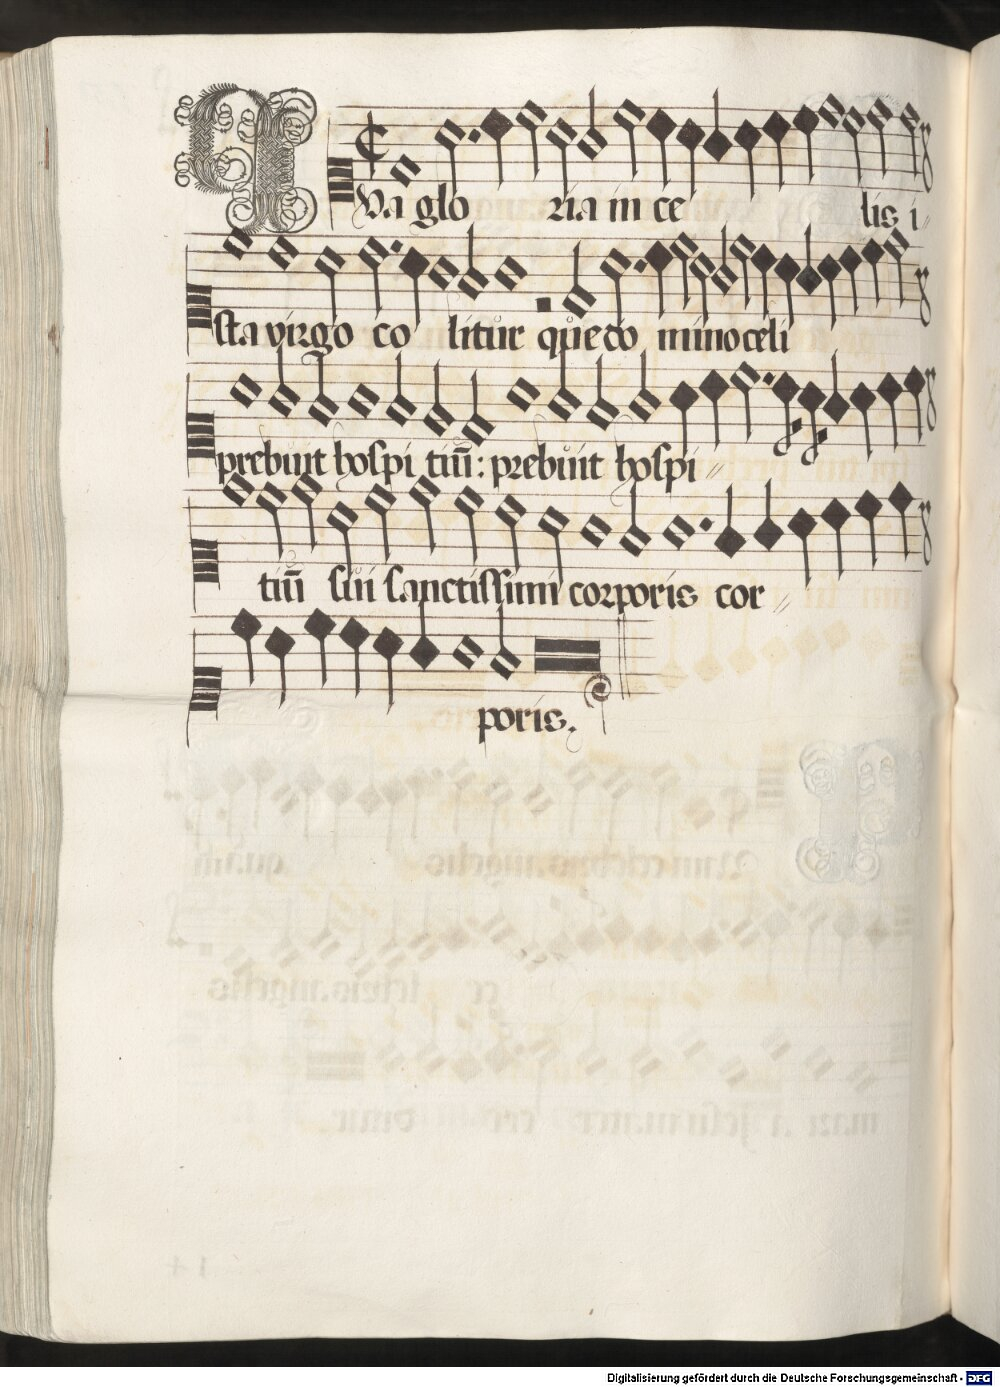 Qua glo ria in ce lis i
sta virgo co litur que do mino celi
prebuit hospi tiū: prebuit hospi
tiū sui sanctissimi corporis cor
poris.
Digitalisierung gefördert durch die Deutsche Forschungsgemeinschaft - DFG